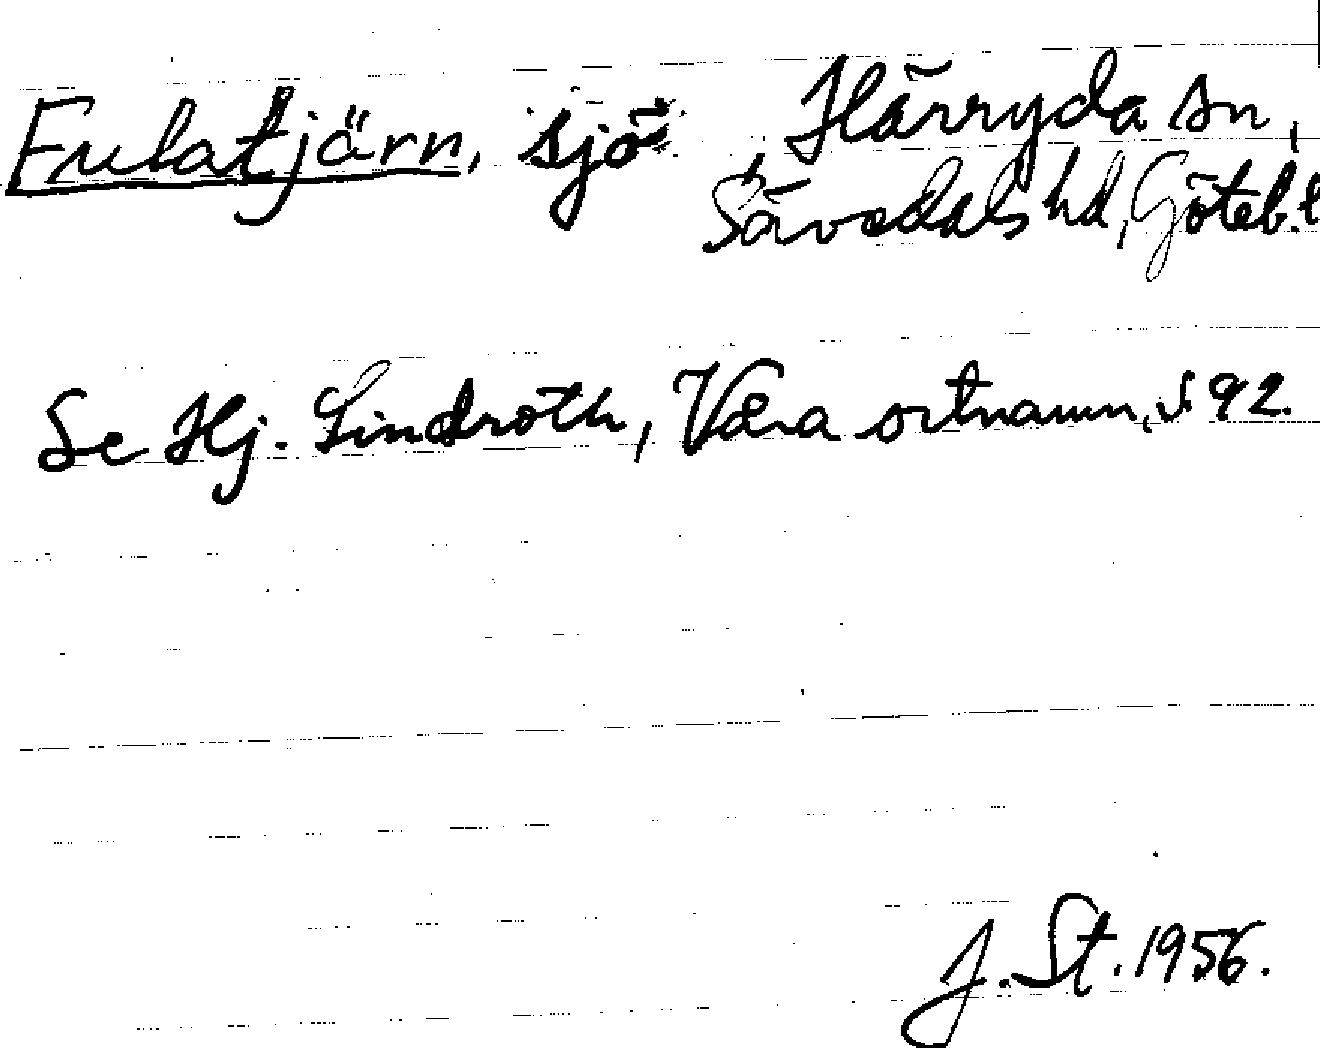 Fulatjärn, sjö, Härryda sn,
Sävedals hd, Göteb. l
Se Hj. Lindroth, Våra ortnamn, s. 92.
J. St. 1956.